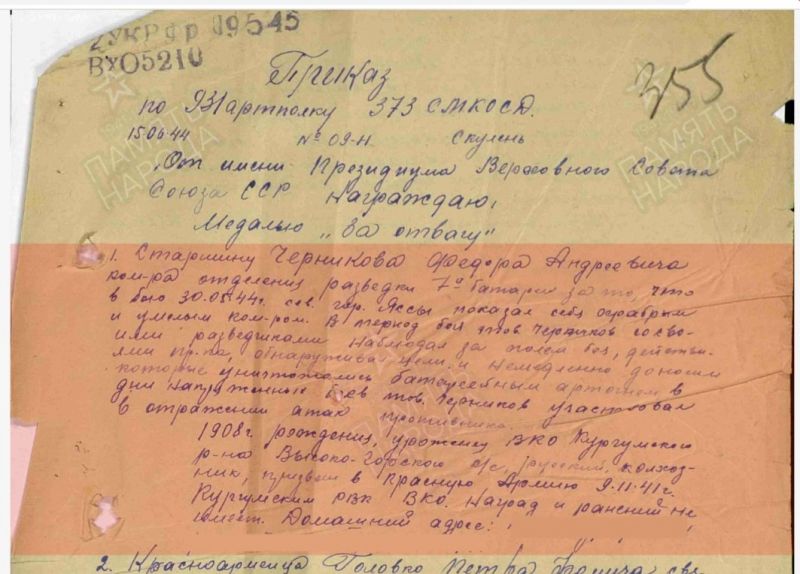 2 УКР ФР 09545
ВХ05210
355
Приказ
по 931 артполку 373 СМКОСД.
15.06.44 № 09-н. Скулень
"От имени Президиума Верховного Совета
Союза ССР Награждаю,
Медалью "За отвагу"
1. Старшину Черникова Федора Андреевича
ком-ра отделения разведки 7ой батареи за то, что
в бою 30.05.44г. сев. гор. Яссы показал себя храбрым
и умелым ком-ром. В период боя тов Черников со сво-
ими разведчиками наблюдал за полем боя, действи-
ями пр-ка, обнаруживал цели и немедленно доносил
которые уничтожались батарейным артогнем в
дни напряженных боев тов. Черников участвовал
в отражении атак противника.
1908г. рождения, уроженец ВКО Кургумского
р-на Высоко-Горской с/с, русский, колхоз-
ник, призван в Красную Армию 9.11.41г.
Кургумским РВК ВКО. Наград и ранений не
имеет. Домашний адрес:
2. Красноармейца Головко Петра
ПАМЯТЬ
НАРОДА
ПАМЯТЬ
НАРОДА